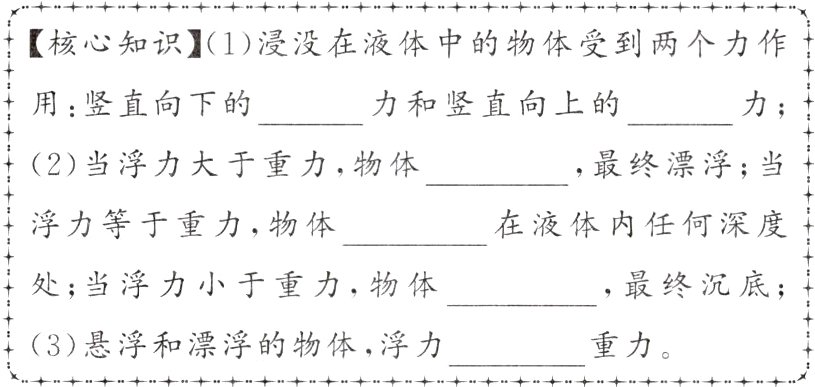 【核心知识】(1)浸没在液体中的物体受到两个力作
用:竖直向下的______力和竖直向上的______力;
(2)当浮力大于重力,物体________,最终漂浮;当
浮力等于重力,物体________在液体内任何深度
处;当浮力小于重力,物体________,最终沉底;
(3)悬浮和漂浮的物体,浮力________重力。